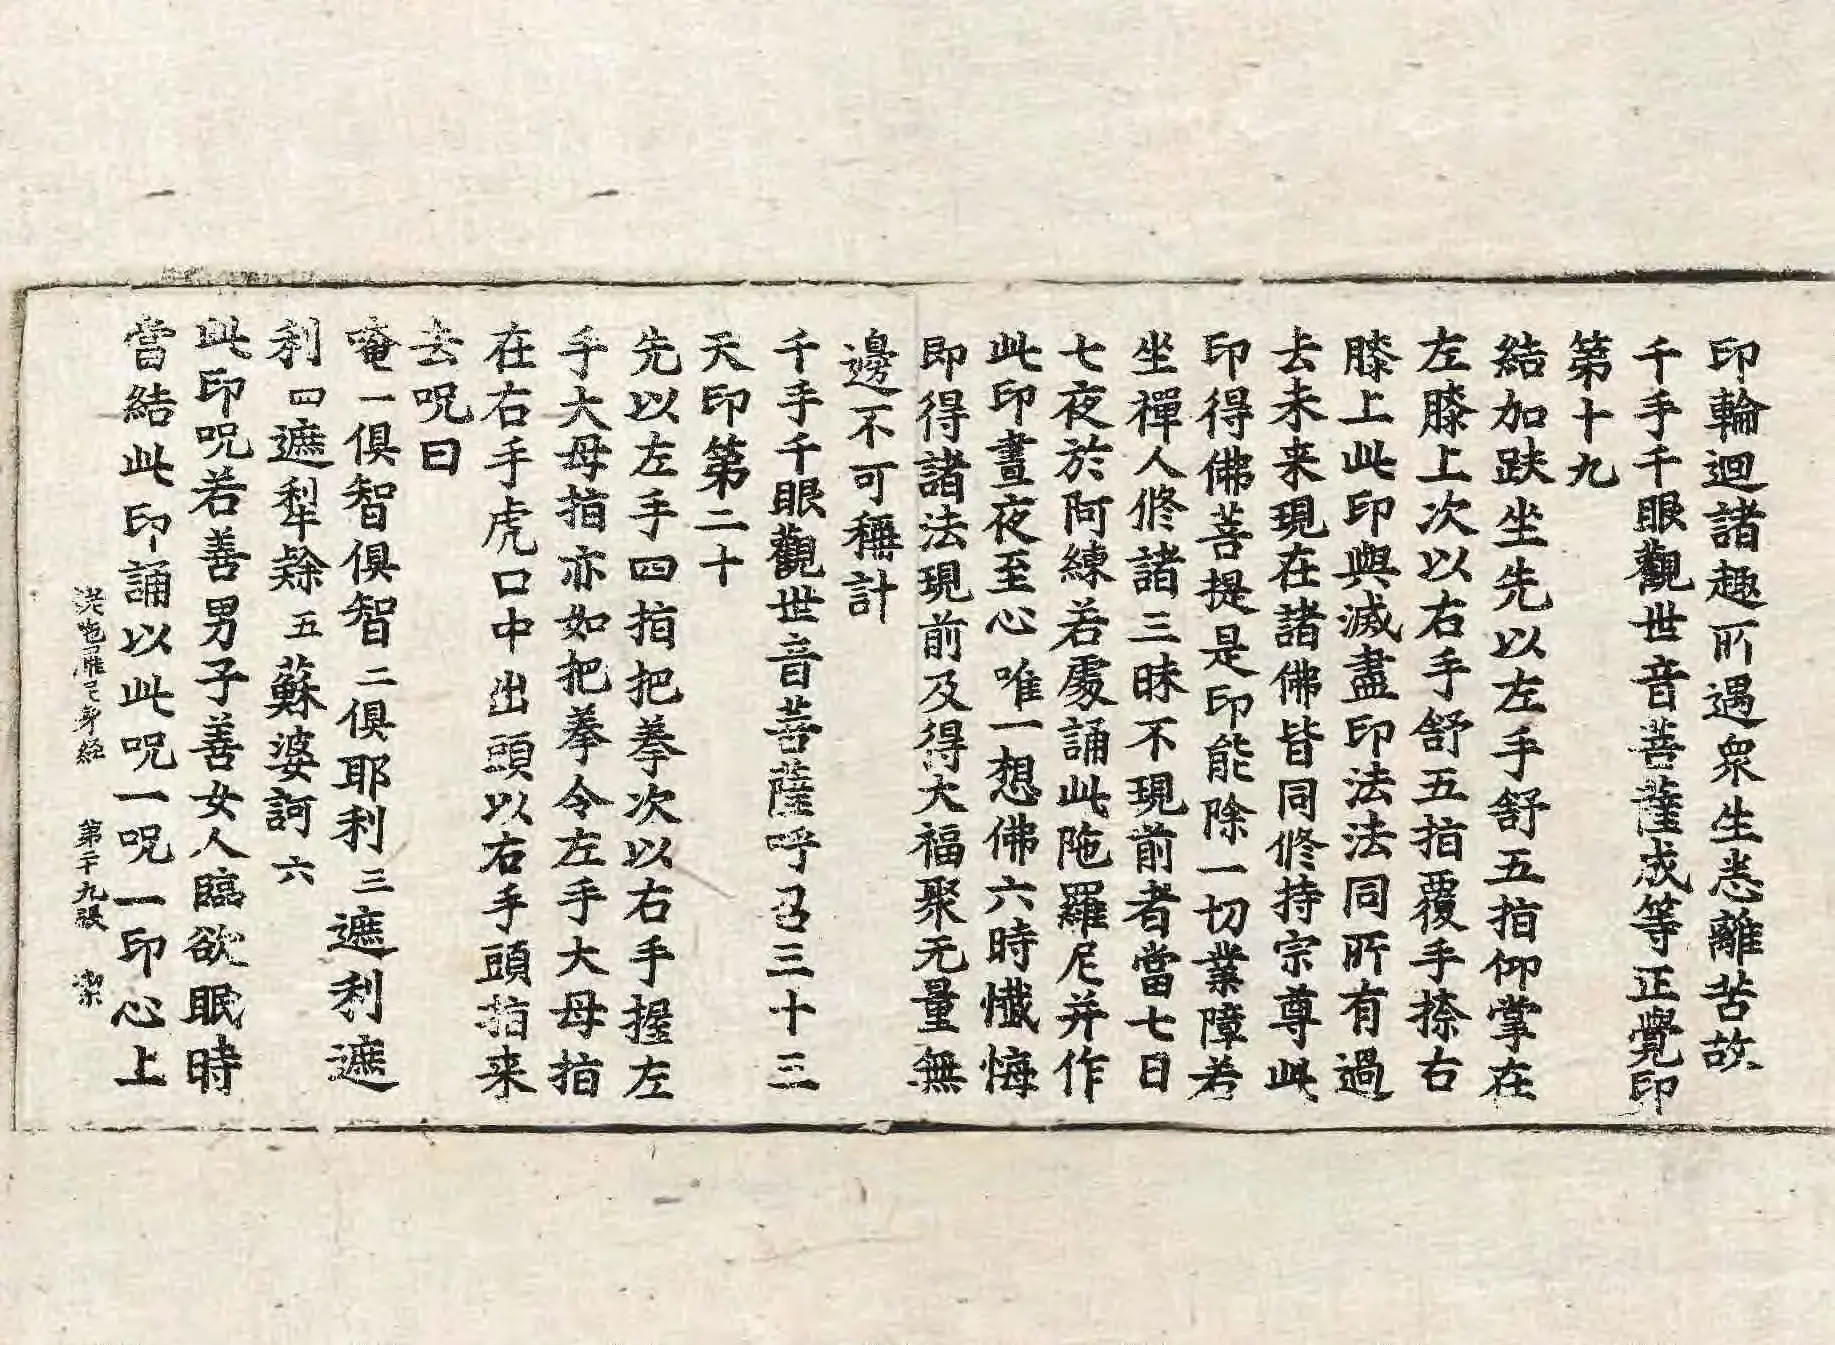 印輪迴諸趣所遇衆生悉離苦故
千手千眼觀世音菩薩成等正覺印
第十九
結加趺坐先以左手舒五指仰掌在
左膝上次以右手舒五指覆手捺右
膝上此印與滅盡印法法同所有過
去未来現在諸佛皆同修持宗尊此
印得佛菩提是印能除一切業障若
坐禪人修諸三昧不現前者當七日
七夜於阿練若處誦此陁羅尼并作
此印晝夜至心唯一想佛六時懺悔
即得諸法現前及得大福聚无量無
邊不可稱計
千手千眼觀世音菩薩呼召三十三
天印第二十
先以左手四指把拳次以右手握左
手大母指亦如把拳令左手大母指
在右手虎口中出頭以右手頭指来
去呪曰
唵一俱智俱智二俱耶利三遮利遮
利四遮犁㕧五蘇婆訶六
此印呪若善男子善女人臨欲眠時
當結此印誦以此呪一呪一印心上
身經 第二十九張 潔